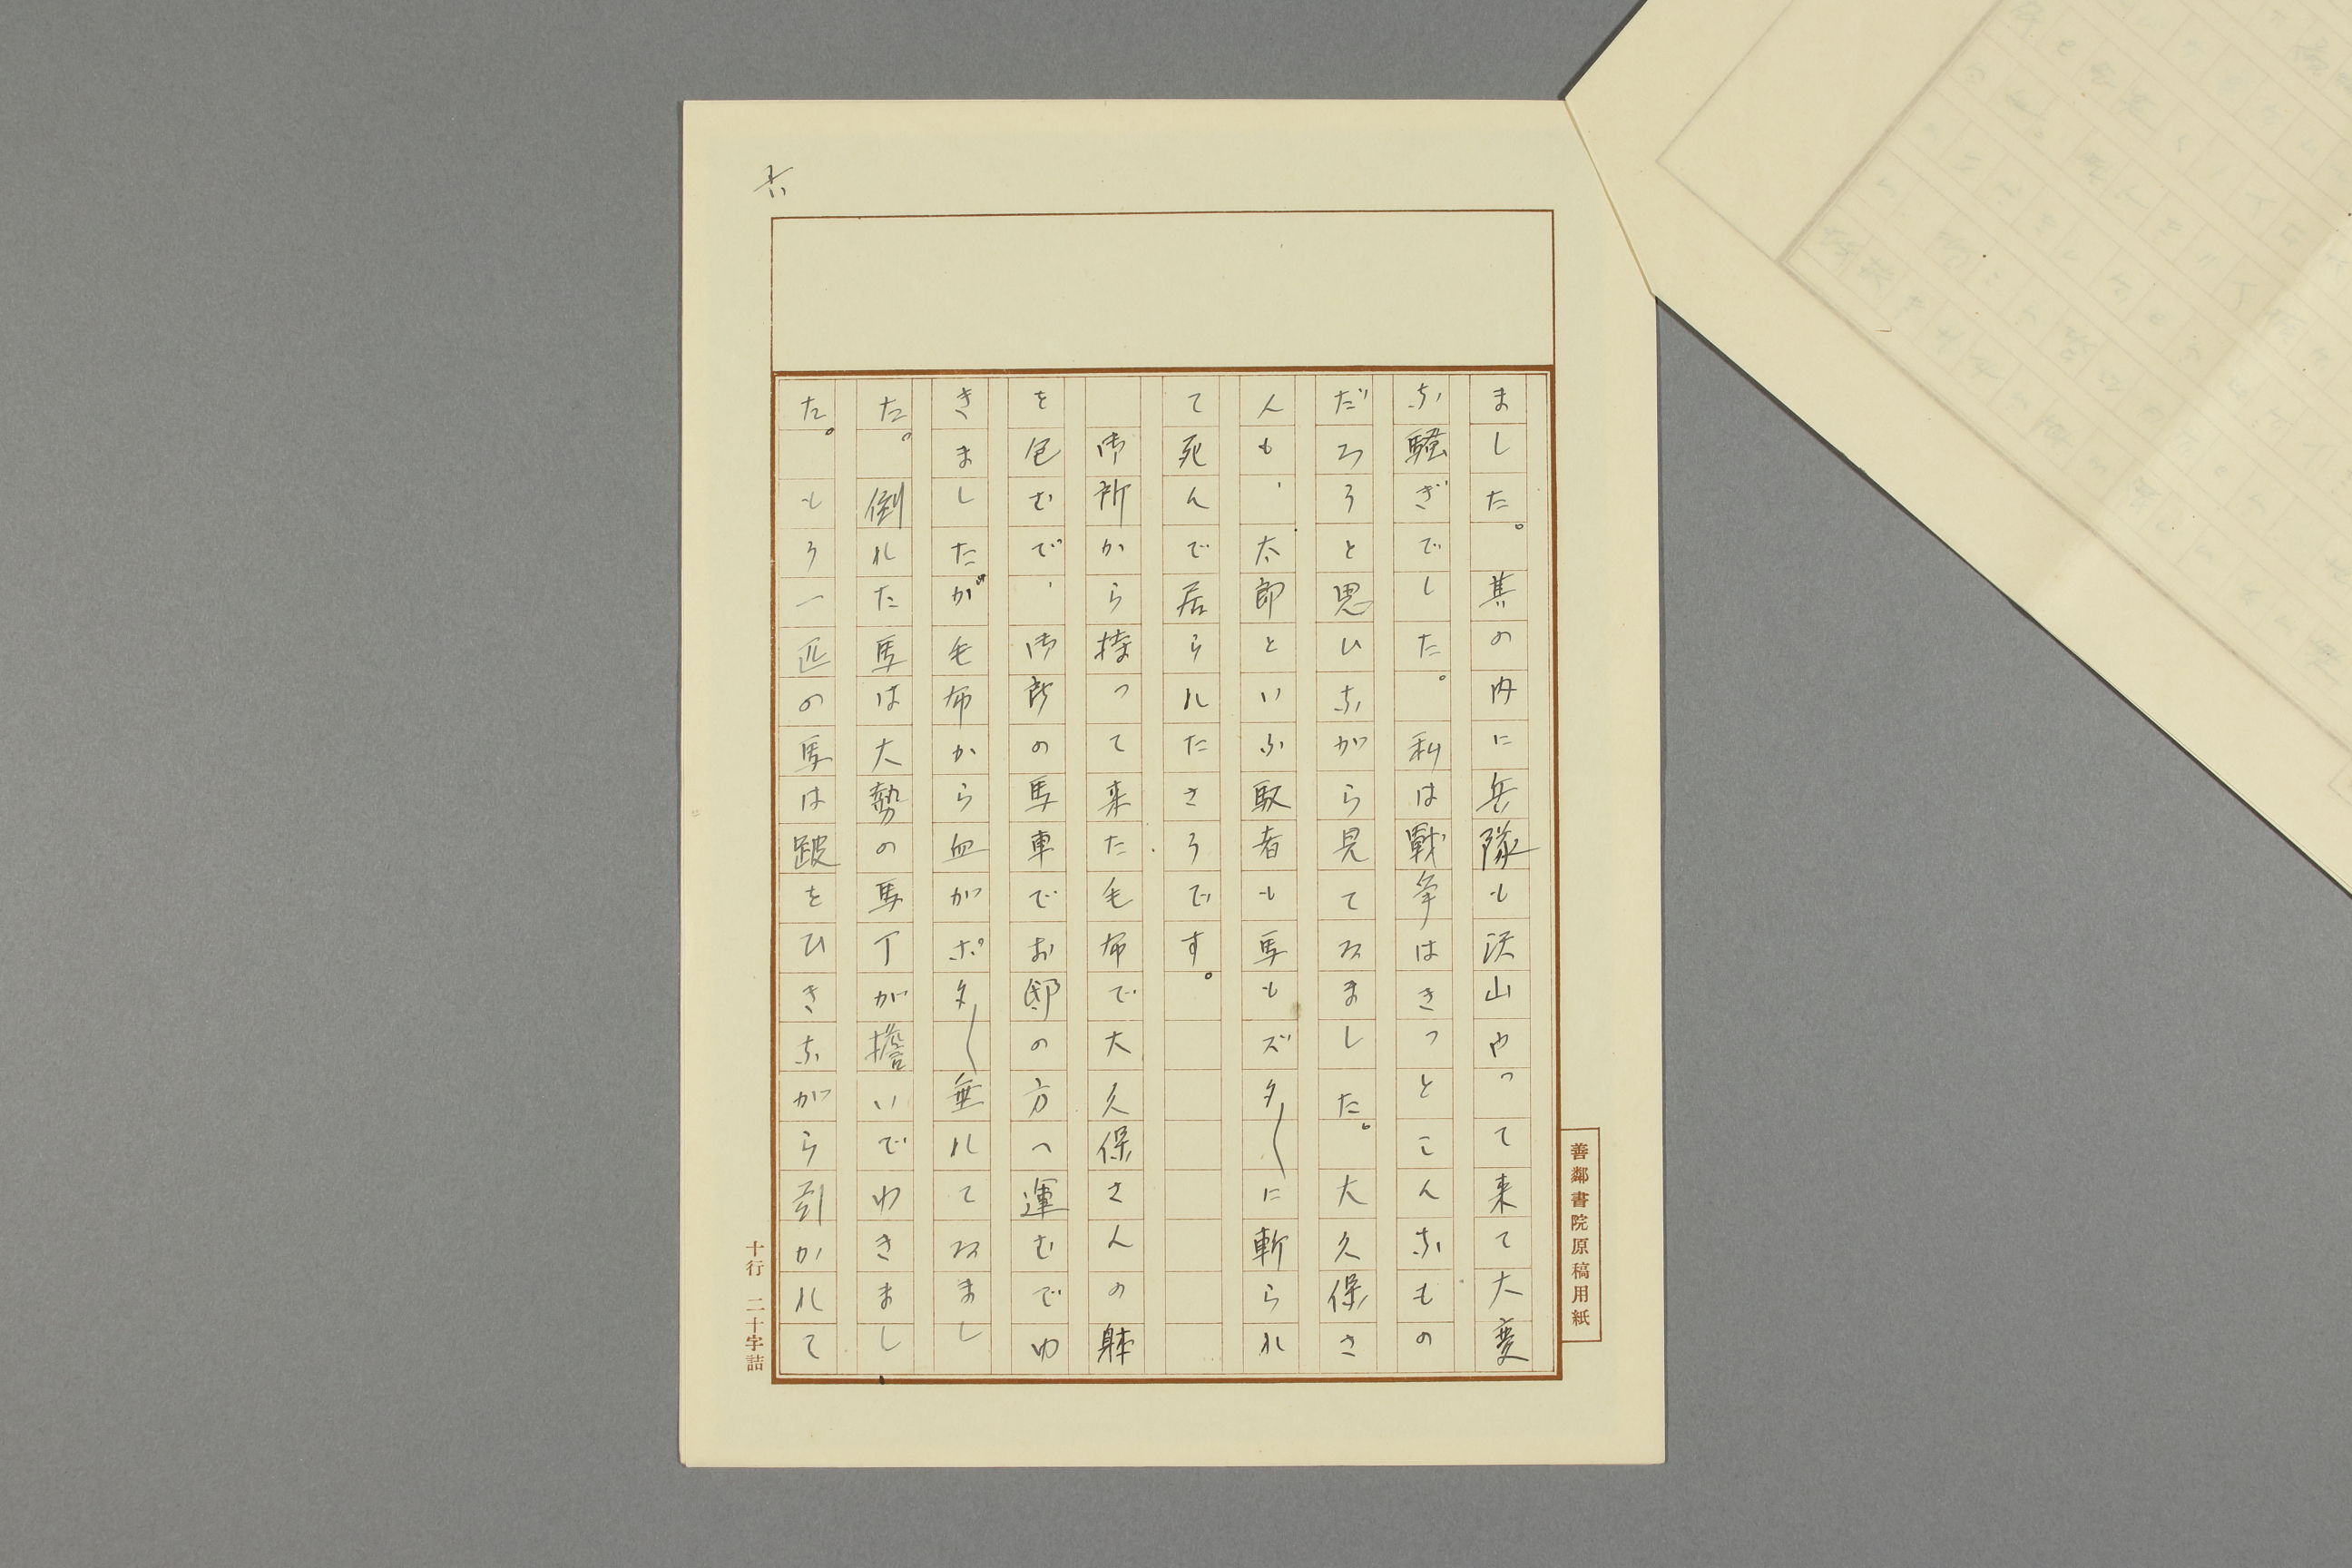 ました。其の内に兵隊も沢山やって来て大変
な騒ぎでした。私は戦争はきっとこんなもの
だろうと思ひながら見てゐました。大久保さ
んも、太郎といふ馭者も馬もズタ〱に斬られ
て死んで居られたさうです。
御所から持って来た毛布で大久保さんの躰
を包むで、御所の馬車でお邸の方へ運むでゆ
きましたが毛布から血がポタ〱垂れてゐまし
た。倒れた馬は大勢の馬丁が擔いでゆきまし
た。もう一匹の馬は跛をひきながら引かれて
善鄰書院原稿用紙
十行 二十字詰